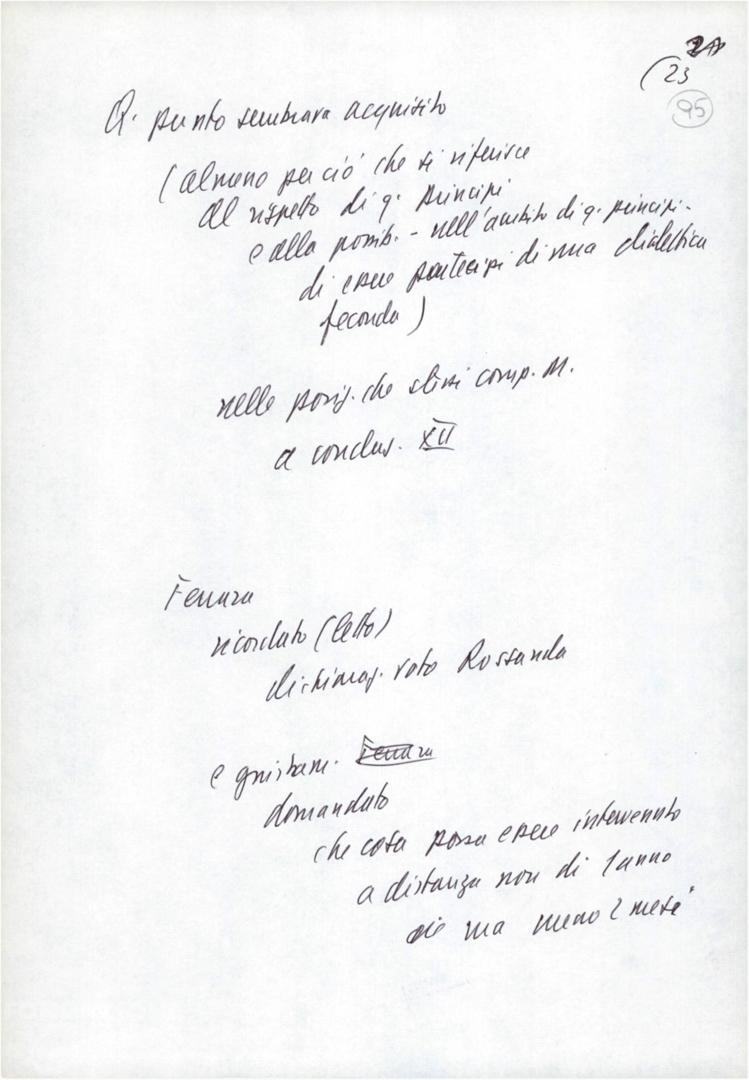 (23
95
Q. punto sembrava acquisito
(almeno per ciò che si riferisce
al rispetto di q. principi
e alla possib. - nell'ambito di q. principi -
di essere partecipi di una dialettica
feconda)
nelle posiz. che stessi comp. M.
a conclus. XII
Ferrara
ricordato (letto)
dichiaraz. voto Rossanda
e giustam. Ferrara
domandato
che cosa possa essere intervenuto
a distanza non di 1 anno
ma meno 2 mesi